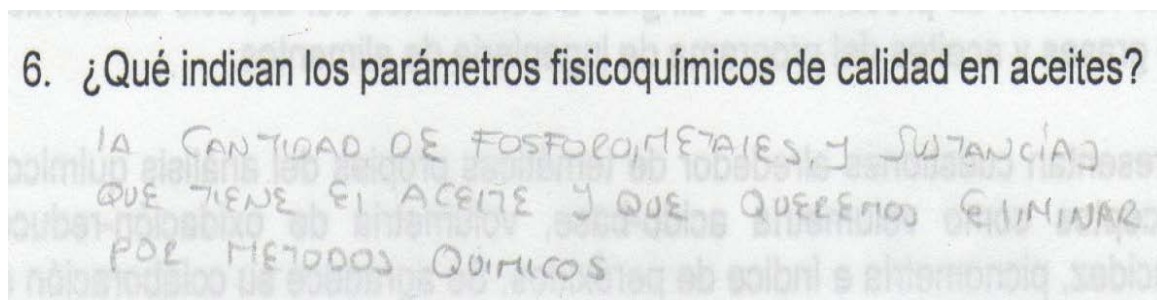 6. ¿Qué indican los parámetros fisicoquímicos de calidad en aceites?
lA CANTIDAD DE FOSFORO,METAlES, Y SUSTANCÍAS
QUE TIENE El ACEITE Y QUE QUEREMOS ElIMINAR
POR METODOS QUIMICOS